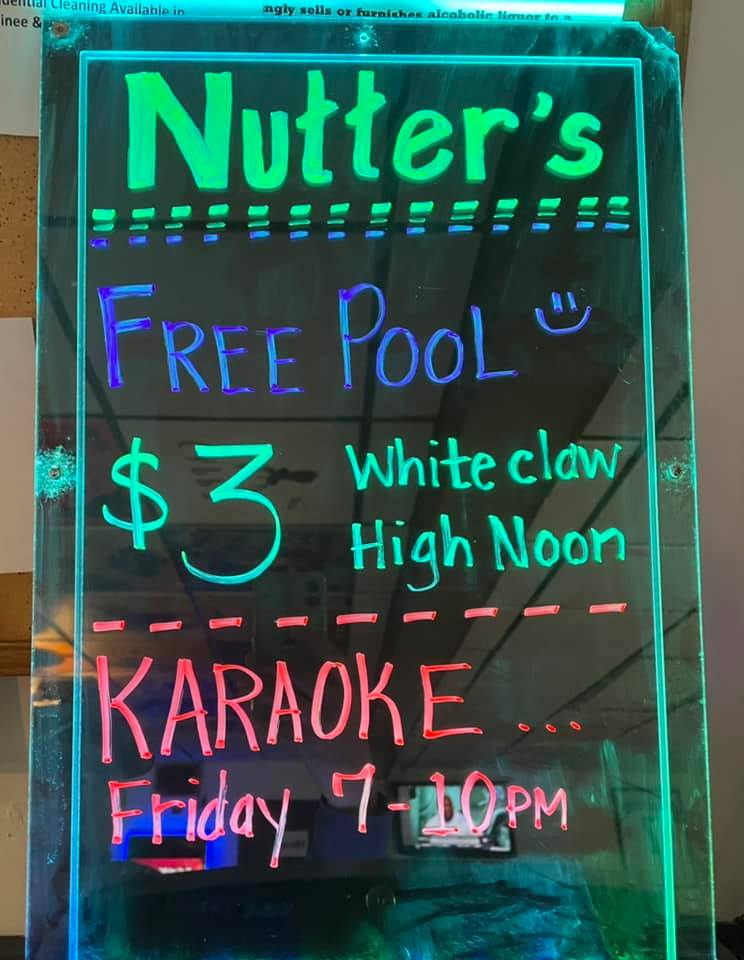 dential Cleaning Available in
inee &
ngly sells or furnishes alcoholic liquor to a
Nutter's
FREE POOL
$3 White claw
High Noon
KARAOKE ...
Friday 7-10PM